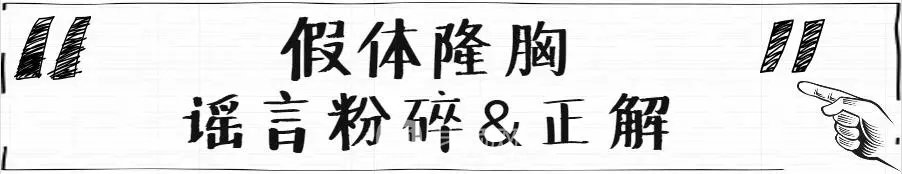 假体隆胸
谣言粉碎&正解